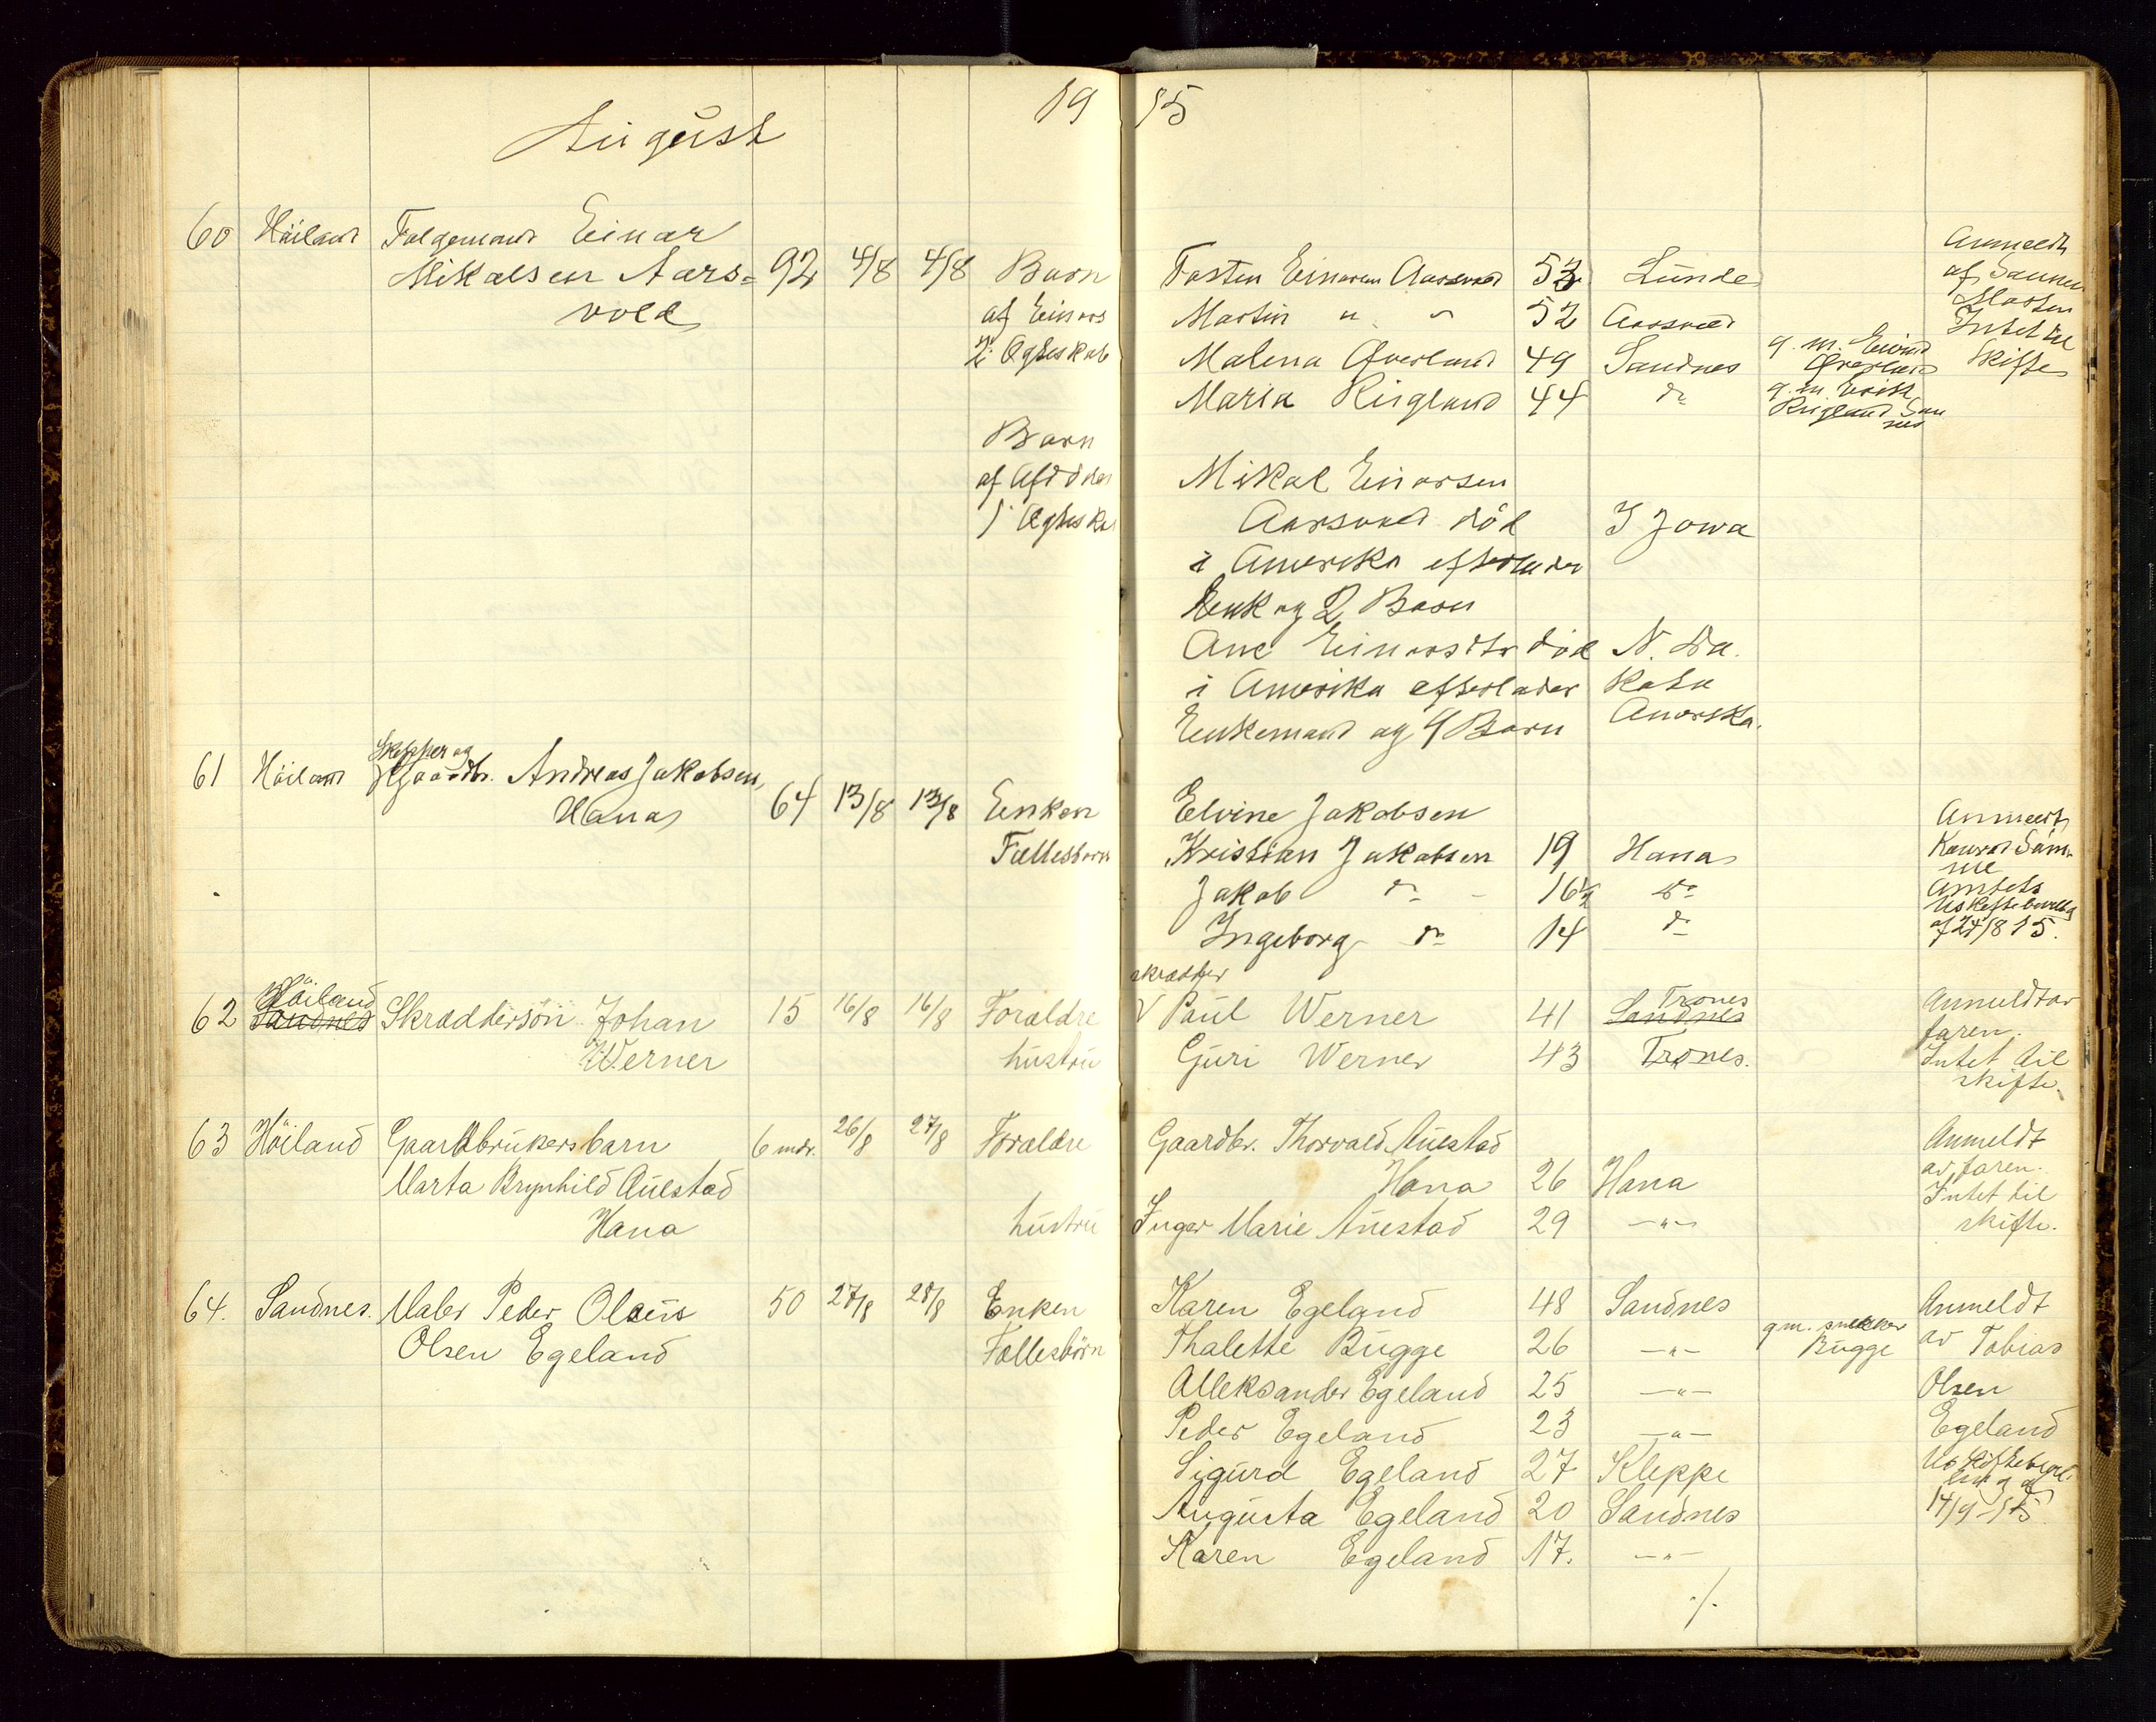 August 19 15
60 Höiland Folgemand Einar
Mikalsen Aars= 92 4/8 4/8 Barn Tosten Einarsen Aarsvold 53 Lunde Anmeldt
vold af Einars Martin " " 52 Aarsvold af Sønnen
2' Ægteskab Malena Qverland 49 Sandnes g. m. Eivind Qverland Intet til
Maria Ringland 44 do g. m. Skifte
Barn
af Afdødes Mikal Einarsen
1' Ægteskab Aarsvold död I Jowa
i Amerika efterlader
Enk og 2 Barn
Ane Einarsdtr död N. Da
i Amerika efterlader kota
Enkemand og 9 Barn Amerika.
61 Höiland Skipper og Gaardbr. Andreas Jakobsen,
Hana 64 13/8 13/8 Enken Elvine Jakobsen Anmeldt
Fællesbørn Kristian Jakobsen 19 Hana
Jakob do - 16½ do Amtets
Ingeborg do 14 do af 24/8 15.
62 Höiland Sandnes Skræddersön Johan 15 16/8 16/8 Forældre skrædder Paul Werner 41 Sandnes Trones Anmeldt av
Werner hustru Guri Werner 43 Trones. faren.
Intet til
skifte.
63 Höiland Gaardbrukersbarn 6 mdr. 26/8 27/8 Forældre Gaardbr. Thorvald Auestad Anmeldt
Marta Brynhild Auestad Hana 26 Hana av faren.
Hana hustru Inger Marie Auestad 29 -"- Intet til
skifte.
64. Sandnes. Maler Peder Olaus 50 27/8 28/8 Enken Karen Egeland 48 Sandnes Anmeldt
Olsen Egeland Fællesbörn Thalette Bugge 26 -"- gm. snekker Bugge av Tobias
Alleksander Egeland 25 -"- Olsen
Peder Egeland 23 -"- Egeland
Sigurd Egeland 27 Kleppe
Augusta Egeland 20 Sandnes 14/9-15
Karen Egeland 17. -"-
./.